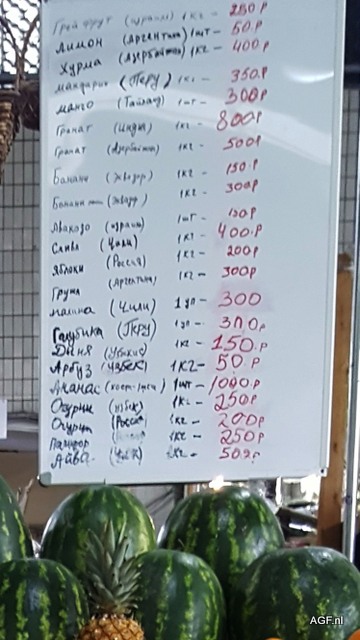 Грейпфрут (Израиль) 1кг - 250р
Лимон (Аргентина) 1шт - 50.р
Хурма (Азербайжан) 1кг - 400р
мандарин (Перу) 1кг - 350.р
манго (Тайланд) 1шт - 300р
Гранат (Индия) 1кг - 800р
Гранат (Азербайжан) 1кг - 500р
Бананы (Эквадор) 1кг - 150.р
Бананы (Эквадор) 1кг - 300р
Авакадо (Израиль) 1шт - 150.р
Слива (Чили) 1кг - 400.р
Яблоки (Россия) 1кг - 200р
Груша (Аргентина) 1кг - 300р
малина (Чили) 1уп - 300
Голубика (Перу) 1уп - 300р
Дыня (Узбекис) 1кг - 150.р
Арбуз (Узбек) 1кг - 50.р
Ананас 1шт - 1000р
Огурцы (Узбек) 1кг - 250р
Огурцы (Россия) 1кг - 200р
Помидор 1кг - 250р
Айва 1кг - 502р
AGF.nl